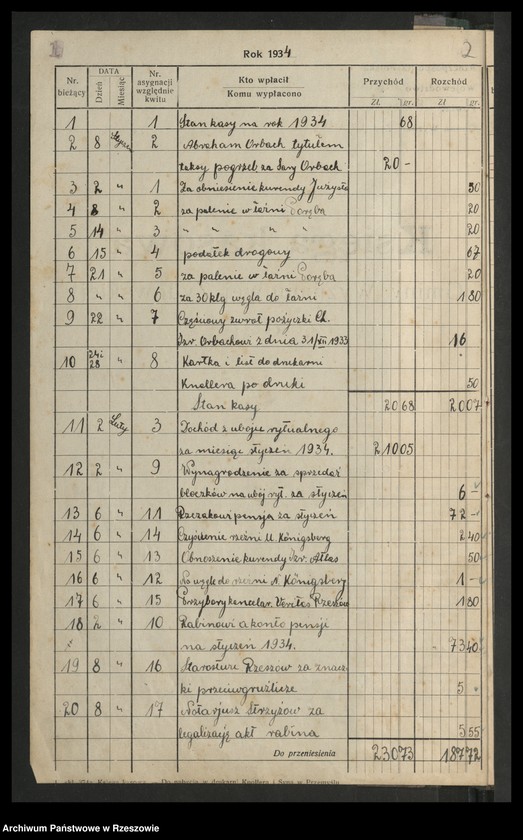 2
Rok 1934
Nr. bieżący DATA Dzień Miesiąc Nr. asygnacji względnie kwitu Kto wpłacił Komu wypłacono Przychód Zł. gr. Rozchód Zł. gr.
1 1 Stan kasy na rok 1934 68
2 8 2 Abraham Orbach tytułem
taksy pogrzeb za Sary Orbach 20 -
3 2 " 1 Za obniesienie kurendy 50
4 8 " 2 za palenie w łaźni Poręba 20
5 14 " 3 " " " " 20
6 15 " 4 podatek drogowy 67
7 21 " 5 za palenie w łaźni Poręba 20
8 " " 6 za 30 klg węgla do łaźni 1 80
9 22 " 7 Częściowy zwrot pożyczki Ch.
Izr. Orbachowi z dnia 31/VII 1933 16
10 24 i 28 " 8 Kartka i list do drukarni
Knollera po druki 50
Stan kasy 20 68 20 07
11 2 Luty 3 Dochód z uboju rytualnego
za miesiąc styczeń 1934. 210 05
12 2 " 9 Wynagrodzenie za sprzedaż
bloczków na ubój ryt. za styczeń 6 -
13 6 " 11 Rzezakowi pensja za styczeń 72 -
14 6 " 14 Czyszczenie rzeźni M. Königsberg 2 40
15 6 " 13 Obnoszenie kurendy Izr. Atlas 50
16 6 " 12 N. Königsberg 1 -
17 6 " 15 Przybory kancelar. Rzeszów 1 80
18 2 " 10 Rabinowi a konto pensji
na styczeń 1934. 73 40
19 8 " 16 Starostwu Rzeszów za znacz-
ki przeciwgruźlicze 5 -
20 8 " 17 Notarjusz Strzyżów za
legalizację akt rabina 5 55
Do przeniesienia 230 73 187 72
Archiwum Państwowe w Rzeszowie